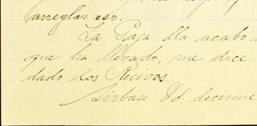 arreglar eso.
La Paja ella acabo
que ha llevado, me dice
dado los Recivos
Sirbase Vd. decirme